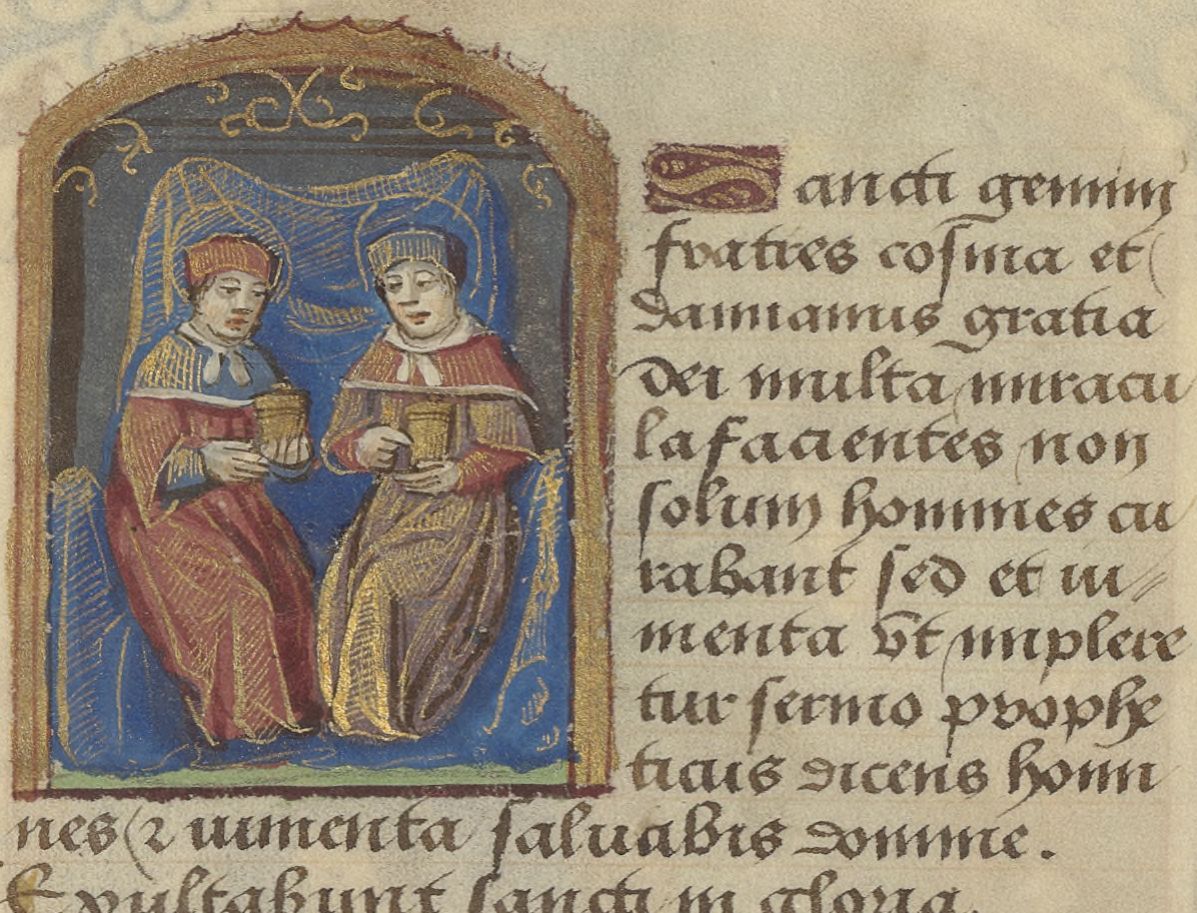 Sancti gemini
fratres cosma et
damianus gratia
dei multa miracu
la facientes non
solum homines cu
rabant sed et iu-
menta vt implere
tur sermo prophe
ticus dicens homi
nes ⁊ iumenta saluabis domine.
Exultabunt sancti in gloria.